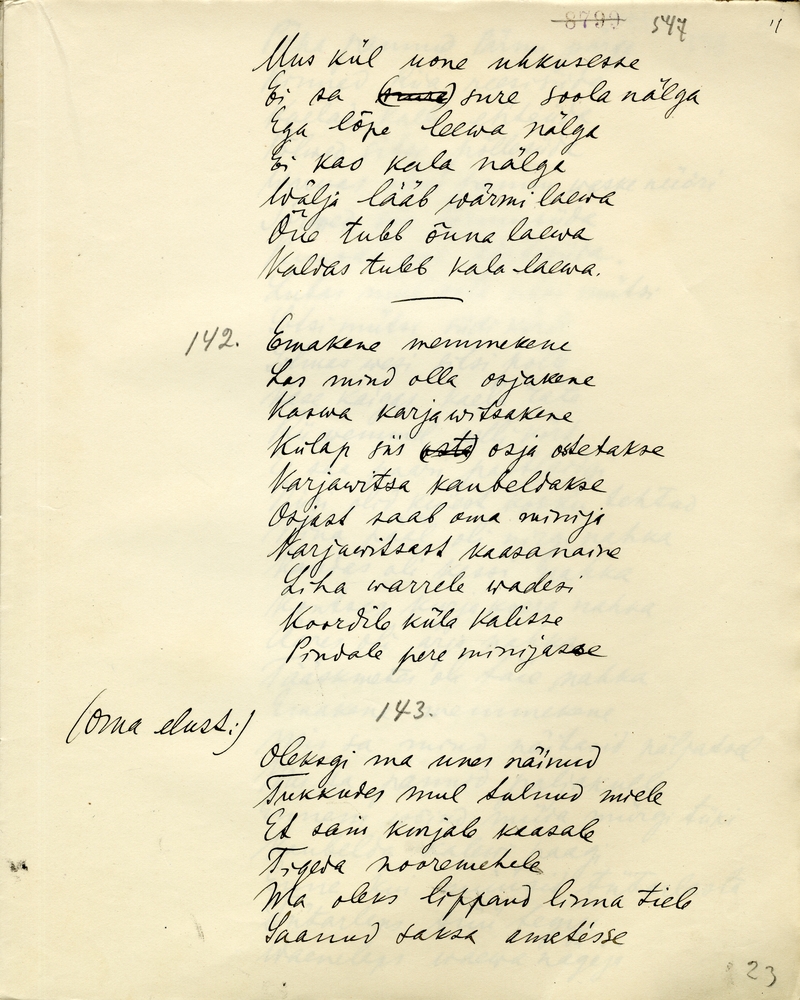 8799 547 11
Mus kül uone uhkusesse
Ei sa sure soola nälga
Ega lõpe leewa nälga
Ei kao kala nälga
Wälja lääb wärmi laewa
Õue tuleb õuna laewa
Kaldas tuleb kala laewa.
142. Emakene memmekene
Las mind olla osjakene
Kaswa karjawitsakene
Külap siis (osta) osja ostetakse
Karjawitsa kaubeldakse
Osjast saab oma minija
Karjawitsast kaasanaine
Liha warrele wadesi
Koordile küla kalisse
Pindale pere minijasse
143.
(Oma elust:)
Oleksgi ma unes näinud
Tukkudes mul tulnud miele
Et sain kurjale kaasale
Tigeda nooremehele
Ma oleks lippand linna tiele
Saanud saksa ametisse
23